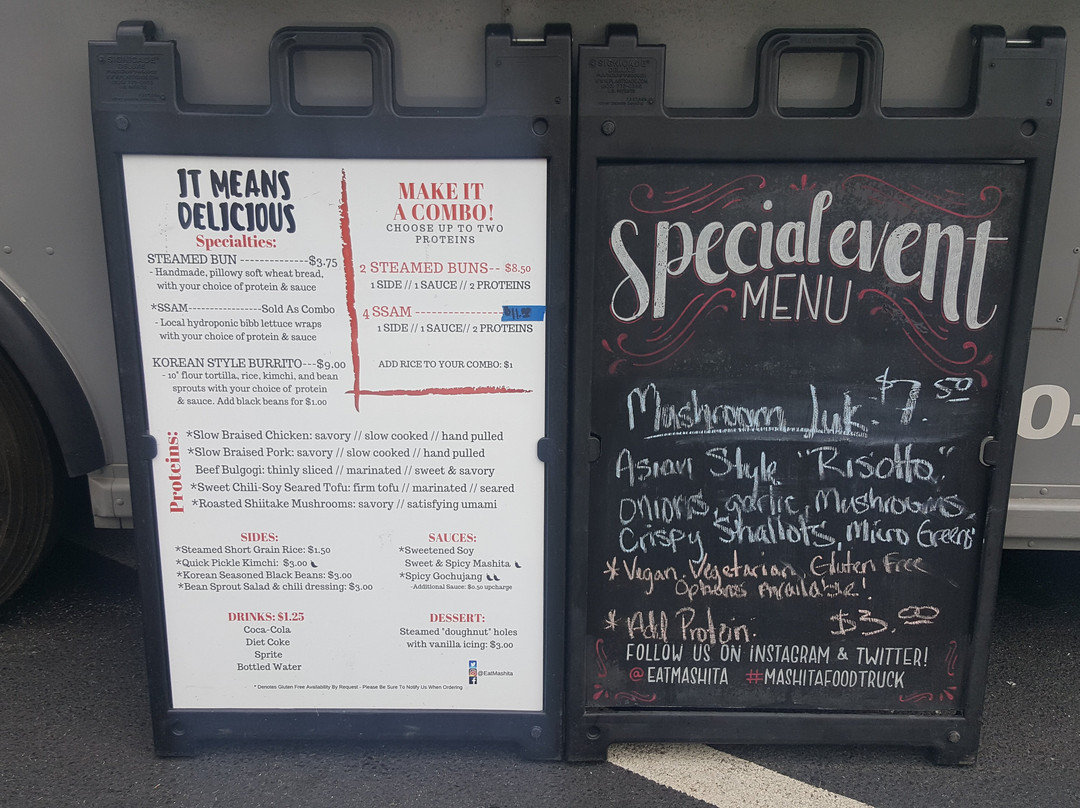 IT MEANS
DELICIOUS
Specialties:
STEAMED BUN --------------$3.75
- Handmade, pillowy soft wheat bread,
with your choice of protein & sauce
*SSAM---------------------Sold As Combo
- Local hydroponic bibb lettuce wraps
with your choice of protein & sauce
KOREAN STYLE BURRITO---$9.00
- 10" flour tortilla, rice, kimchi, and bean
sprouts with your choice of protein
& sauce. Add black beans for $1.00
MAKE IT
A COMBO!
CHOOSE UP TO TWO
PROTEINS
2 STEAMED BUNS-- $8.50
1 SIDE // 1 SAUCE // 2 PROTEINS
4 SSAM ----------------
1 SIDE // 1 SAUCE// 2 PROTEINS
ADD RICE TO YOUR COMBO: $1
Proteins:
*Slow Braised Chicken: savory // slow cooked // hand pulled
*Slow Braised Pork: savory // slow cooked // hand pulled
Beef Bulgogi: thinly sliced // marinated // sweet & savory
*Sweet Chili-Soy Seared Tofu: firm tofu // marinated // seared
*Roasted Shiitake Mushrooms: savory // satisfying umami
SIDES:
*Steamed Short Grain Rice: $1.50
*Quick Pickle Kimchi: $3.00
*Korean Seasoned Black Beans: $3.00
*Bean Sprout Salad & chili dressing: $3.00
SAUCES:
*Sweetened Soy
Sweet & Spicy Mashita
*Spicy Gochujang
-Additional Sauce: $0.50 upcharge
DRINKS: $1.25
Coca-Cola
Diet Coke
Sprite
Bottled Water
DESSERT:
Steamed "doughnut" holes
with vanilla icing: $3.00
@EatMashita
* Denotes Gluten Free Availability By Request - Please Be Sure To Notify Us When Ordering
Special event
MENU
Mushroom Juk. $7.50
Asian Style "Risotto."
onions, garlic, Mushrooms,
Crispy Shallots, Micro Greens
* Vegan, Vegetarian, Gluten Free
Options Available!
* Add Protein. $3.00
FOLLOW US ON INSTAGRAM & TWITTER!
@EATMASHITA #MASHITAFOODTRUCK